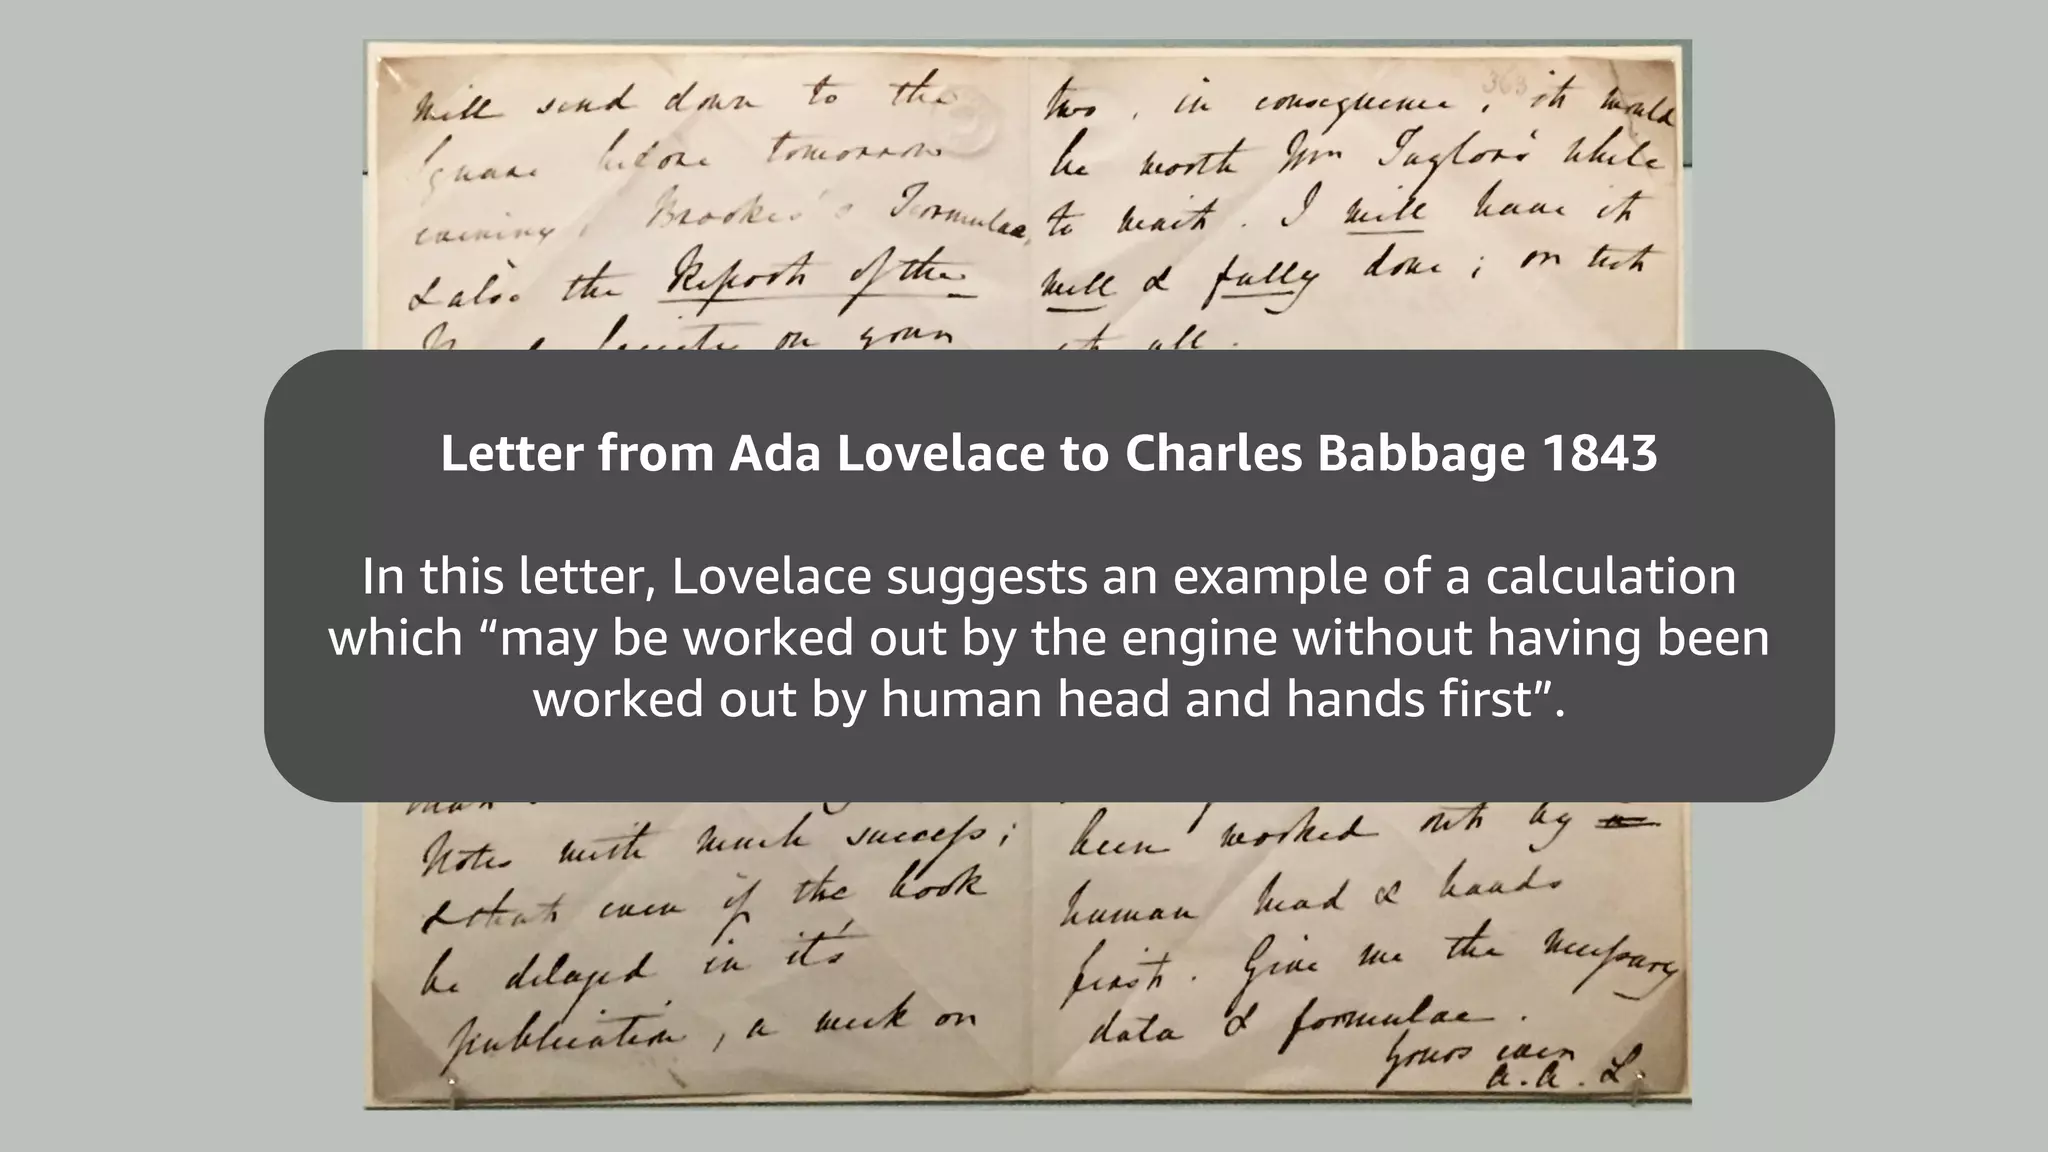 will send down to the
Square before tomorrow
evening, Brooke's Formulae,
& also the Report of the
on your
Notes with much success;
& that even if the book
be delayed in it's
publication, a week or
363
two, in consequence, it would
be worth Mr Taylor's while
to wait. I will have it
well & fully done; or not
at all.
Letter from Ada Lovelace to Charles Babbage 1843
In this letter, Lovelace suggests an example of a calculation
which “may be worked out by the engine without having been
worked out by human head and hands first”.
been worked out by
human head & hands
first. Give me the necessary
data & formulae.
Yours ever
A. A. L